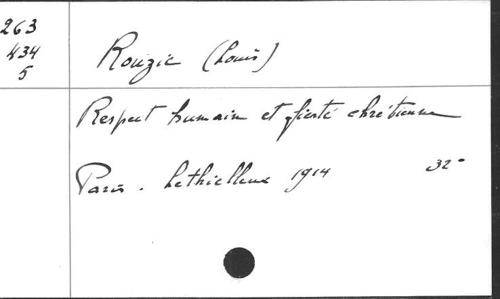 263
434
5
Rouzic (Louis)
Respect humain et fierté chrétienne
Paris. Lethielleux 1914 32°